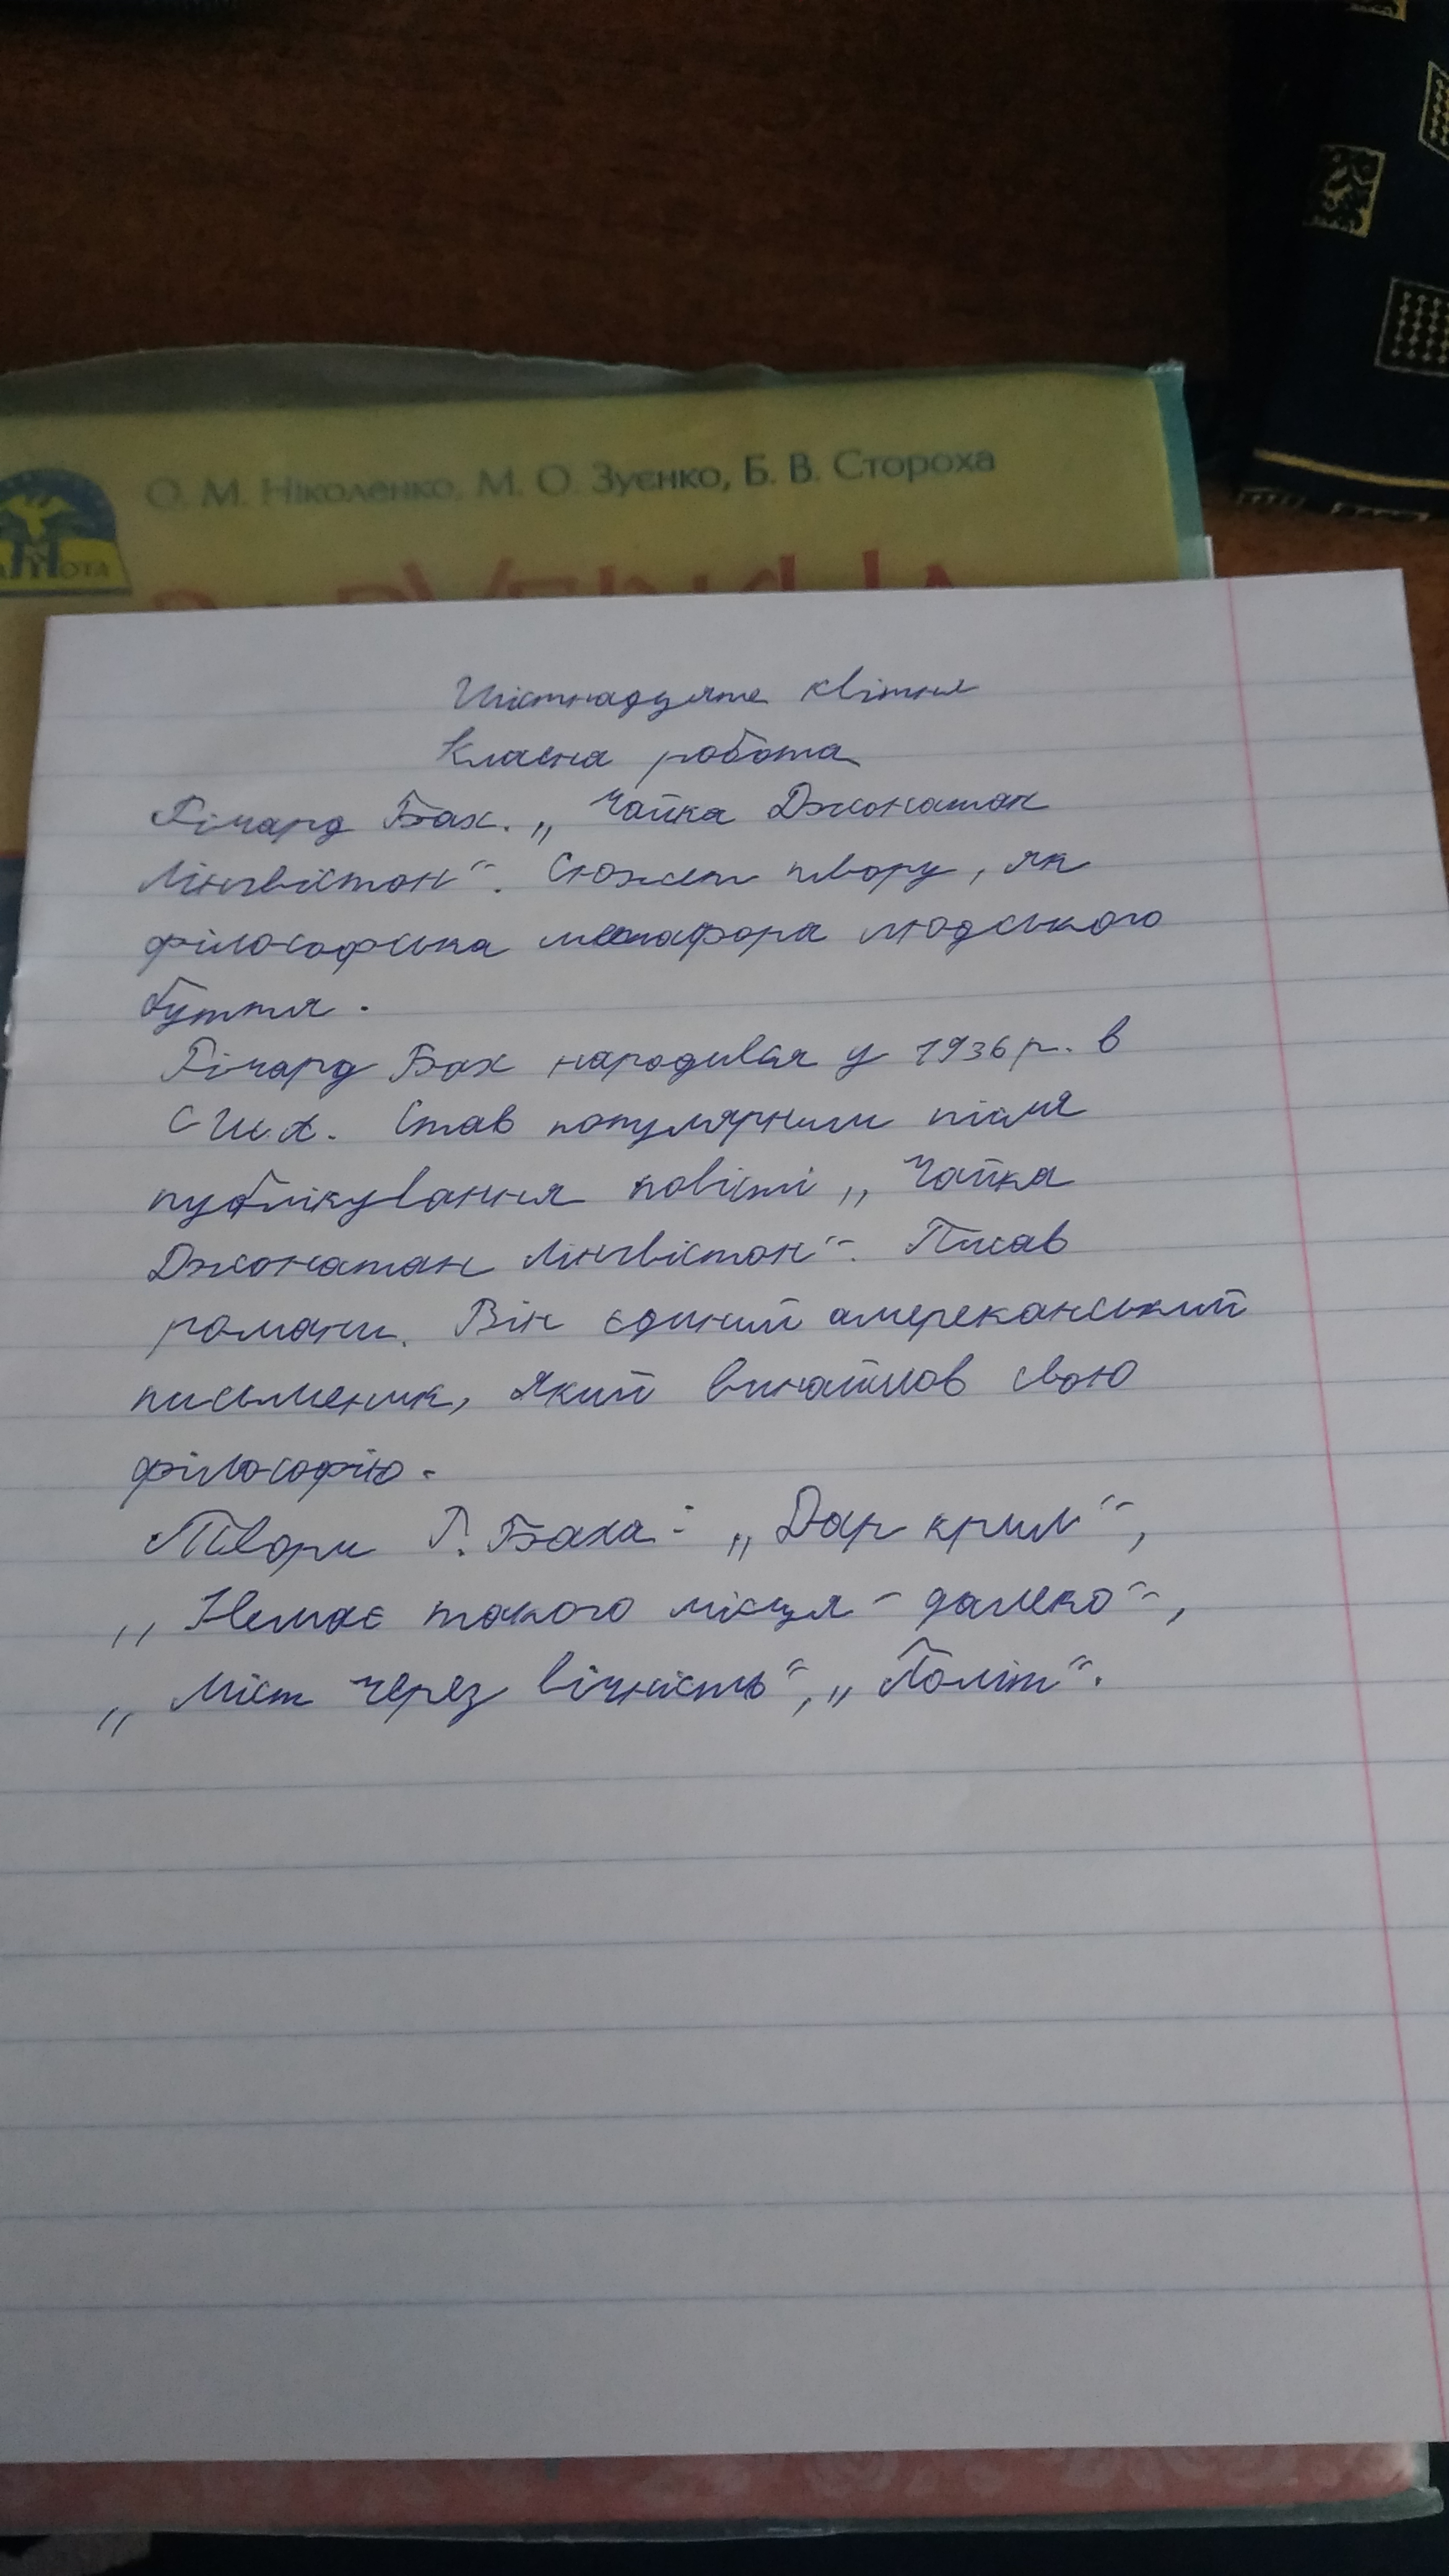 О. М. Ніколенко, М. О. Зуєнко, Б. В. Стороха
Шістнадцяте квітня
Класна робота
Річард Бах. „Чайка Джонатан
Лінгвістон“. Сюжет твору, як
філософська метафора людського
буття.
Річард Бах народився у 1936 р. в
США. Став популярним після
публікування повісті „Чайка
Джонатан Лінгвістон“. Писав
романи. Він єдиний американський
письменник, який винайшов свою
філософію.
Твори Р. Баха: „Дар крил“,
„Немає такого місця - далеко“,
„Міст через вічність“, „Політ“.